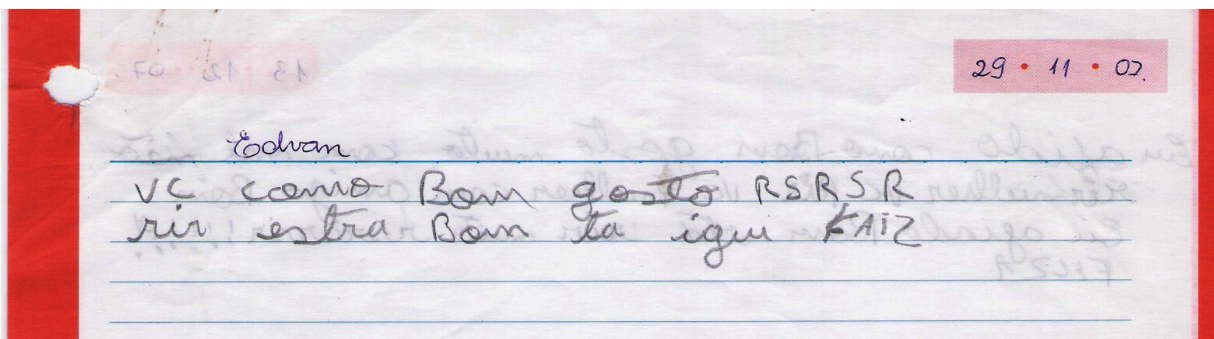 29 • 11 • 07.
Edvan
vc como Bom gosto RSRSR
rir estra Bom ta iqui FAIZ